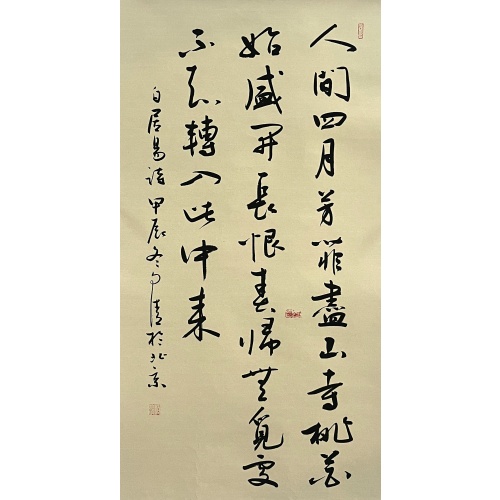 人間四月芳菲盡山寺桃花
始盛开長恨春歸無覓處
不知轉入此中来
白居易詩甲辰冬清於北京